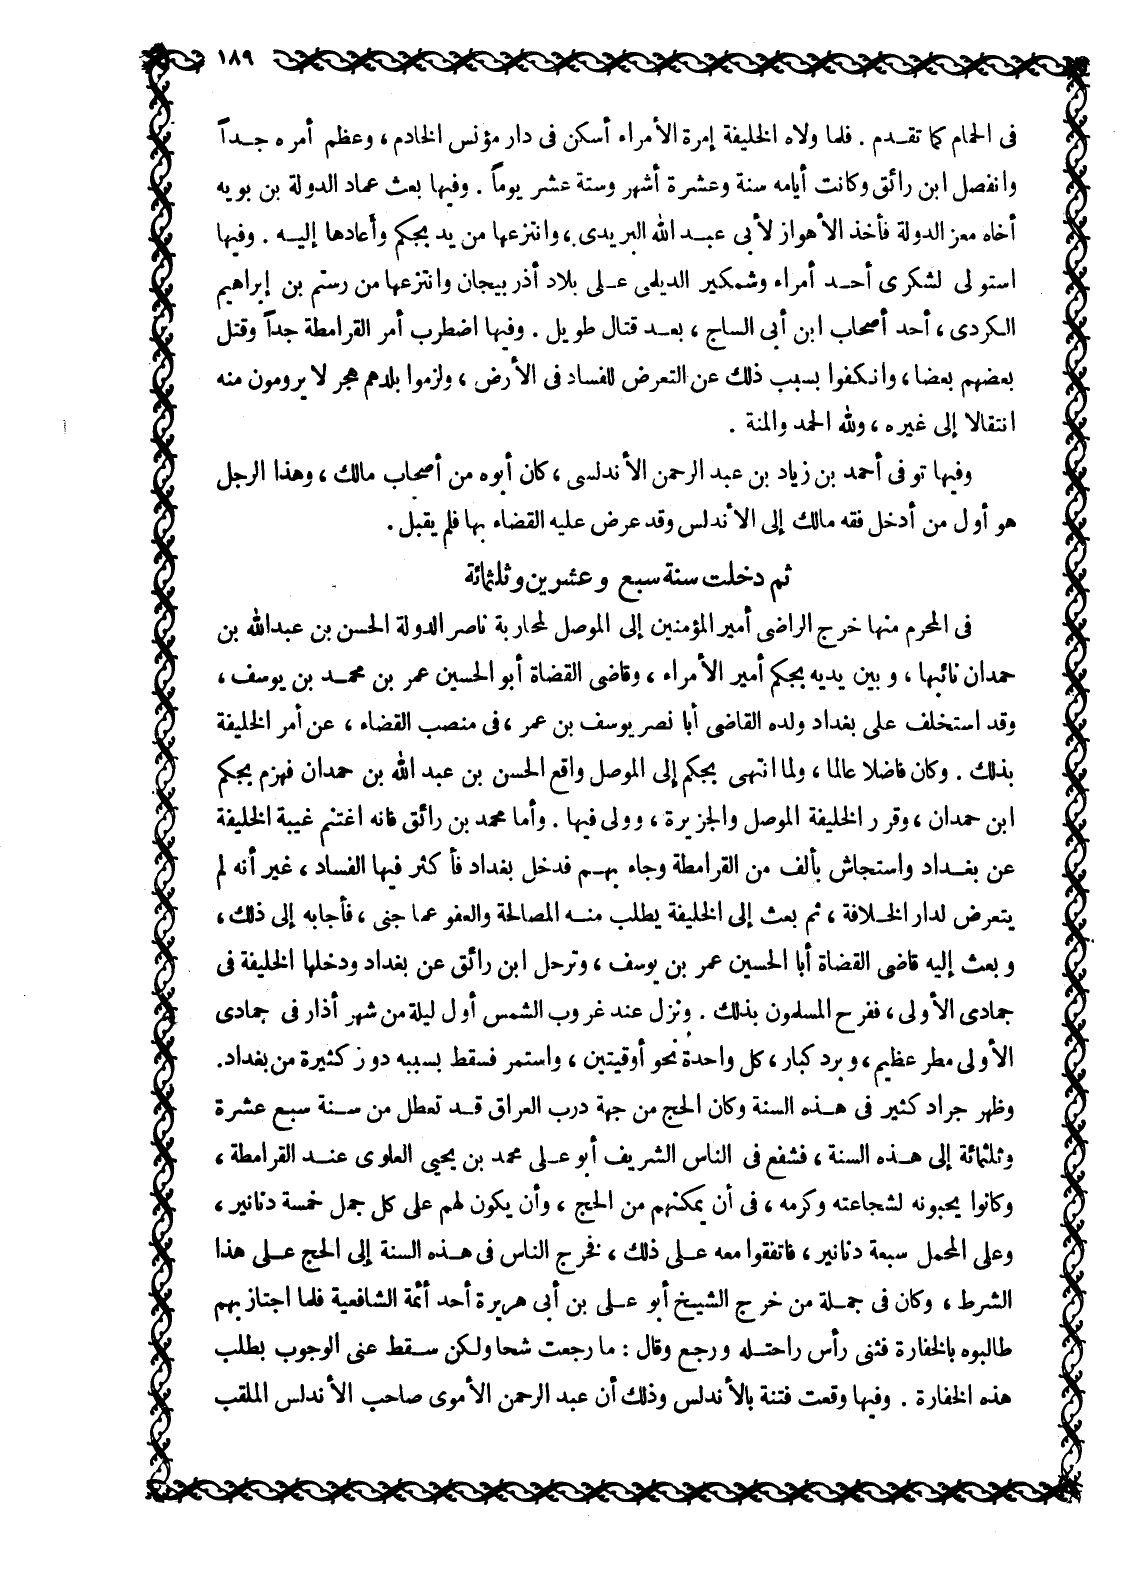 ١٨٩
فى الحمام كما تقدم . فلما ولاه الخليفة إمرة الأمراء أسكن فى دار مؤنس الخادم ، وعظم أمره جداً
وانفصل ابن رائق وكانت أيامه سنة وعشرة أشهر وستة عشر يوماً . وفيها بعث عماد الدولة بن بويه
أخاه معز الدولة فأخذ الأهواز لأبى عبد الله البريدى ، وانتزعها من يد بجكم وأعادها إليه . وفيها
استولى لشكرى أحد أمراء وشمكير الديلمى على بلاد أذربيجان وانتزعها من رستم بن إبراهيم
الكردى ، أحد أصحاب ابن أبى الساج ، بعد قتال طويل . وفيها اضطرب أمر القرامطة جداً وقتل
بعضهم بعضا ، وانكفوا بسبب ذلك عن التعرض للفساد فى الأرض ، ولزموا بلدهم هجر لا يرومون منه
انتقالا إلى غيره ، ولله الحمد والمنة .
وفيها توفى أحمد بن زياد بن عبد الرحمن الأندلسى ، كان أبوه من أصحاب مالك ، وهذا الرجل
هو أول من أدخل فقه مالك إلى الأندلس وقد عرض عليه القضاء بها فلم يقبل .
ثم دخلت سنة سبع وعشرين وثلثمائة
فى المحرم منها خرج الراضى أمير المؤمنين إلى الموصل لمحاربة ناصر الدولة الحسن بن عبدالله بن
حمدان نائبها ، وبين يديه بجكم أمير الأمراء ، وقاضى القضاة أبو الحسين عمر بن محمد بن يوسف ،
وقد استخلف على بغداد ولده القاضى أبا نصر يوسف بن عمر ، فى منصب القضاء ، عن أمر الخليفة
بذلك . وكان فاضلا عالما ، ولما انتهى بجكم إلى الموصل واقع الحسن بن عبد الله بن حمدان فهزم بجكم
ابن حمدان ، وقرر الخليفة الموصل والجزيرة ، وولى فيها . وأما محمد بن رائق فانه اغتنم غيبة الخليفة
عن بغداد واستجاش بألف من القرامطة وجاء بهم فدخل بغداد فأكثر فيها الفساد ، غير أنه لم
يتعرض لدار الخلافة ، ثم بعث إلى الخليفة يطلب منه المصالحة والعفو عما جنى ، فأجابه إلى ذلك ،
وبعث إليه قاضى القضاة أبا الحسين عمر بن يوسف ، وترحل ابن رائق عن بغداد ودخلها الخليفة فى
جمادى الأولى ، ففرح المسلمون بذلك . ونزل عند غروب الشمس أول ليلة من شهر أذار فى جمادى
الأولى مطر عظيم ، وبرد كبار ، كل واحدة نحو أوقيتين ، واستمر فسقط بسببه دور كثيرة من بغداد .
وظهر جراد كثير فى هذه السنة وكان الحج من جهة درب العراق قد تعطل من سنة سبع عشرة
وثلثمائة إلى هذه السنة ، فشفع فى الناس الشريف أبو على محمد بن يحيى العلوى عند القرامطة ،
وكانوا يحبونه لشجاعته وكرمه ، فى أن يمكنهم من الحج ، وأن يكون لهم على كل جمل خمسة دنانير ،
وعلى المحمل سبعة دنانير ، فاتفقوا معه على ذلك ، فخرج الناس فى هذه السنة إلى الحج على هذا
الشرط ، وكان فى جملة من خرج الشيخ أبو على بن أبى هريرة أحد أئمة الشافعية فلما اجتاز بهم
طالبوه بالخفارة فثنى رأس راحلته ورجع وقال : ما رجعت شحا ولكن سقط عنى الوجوب بطلب
هذه الخفارة . وفيها وقعت فتنة بالأندلس وذلك أن عبد الرحمن الأموى صاحب الأندلس الملقب